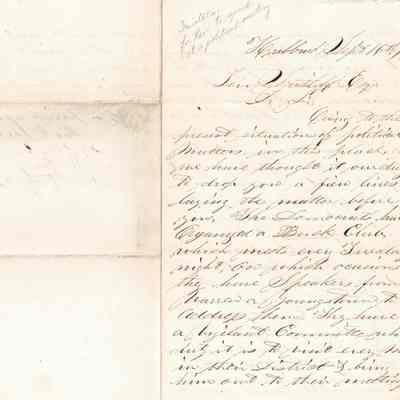 Invitation
for Hon. to speak
at a political meeting
Hubbard Sept 16th
Levi Sutliff Esq
Dr Sir
Owing to the
present situation of political
matters in this place
we have thought it our duty
to drop you a few lines
laying the matter before
you. The Democrats have
Organized a Buck Club,
which meets every Tuesday
night, on which occasions
they have Speakers from
Warren & Youngstown to
address them They have
a Vigilant Committee who
duty it is to visit every
in their District & bring
him out to their meeting